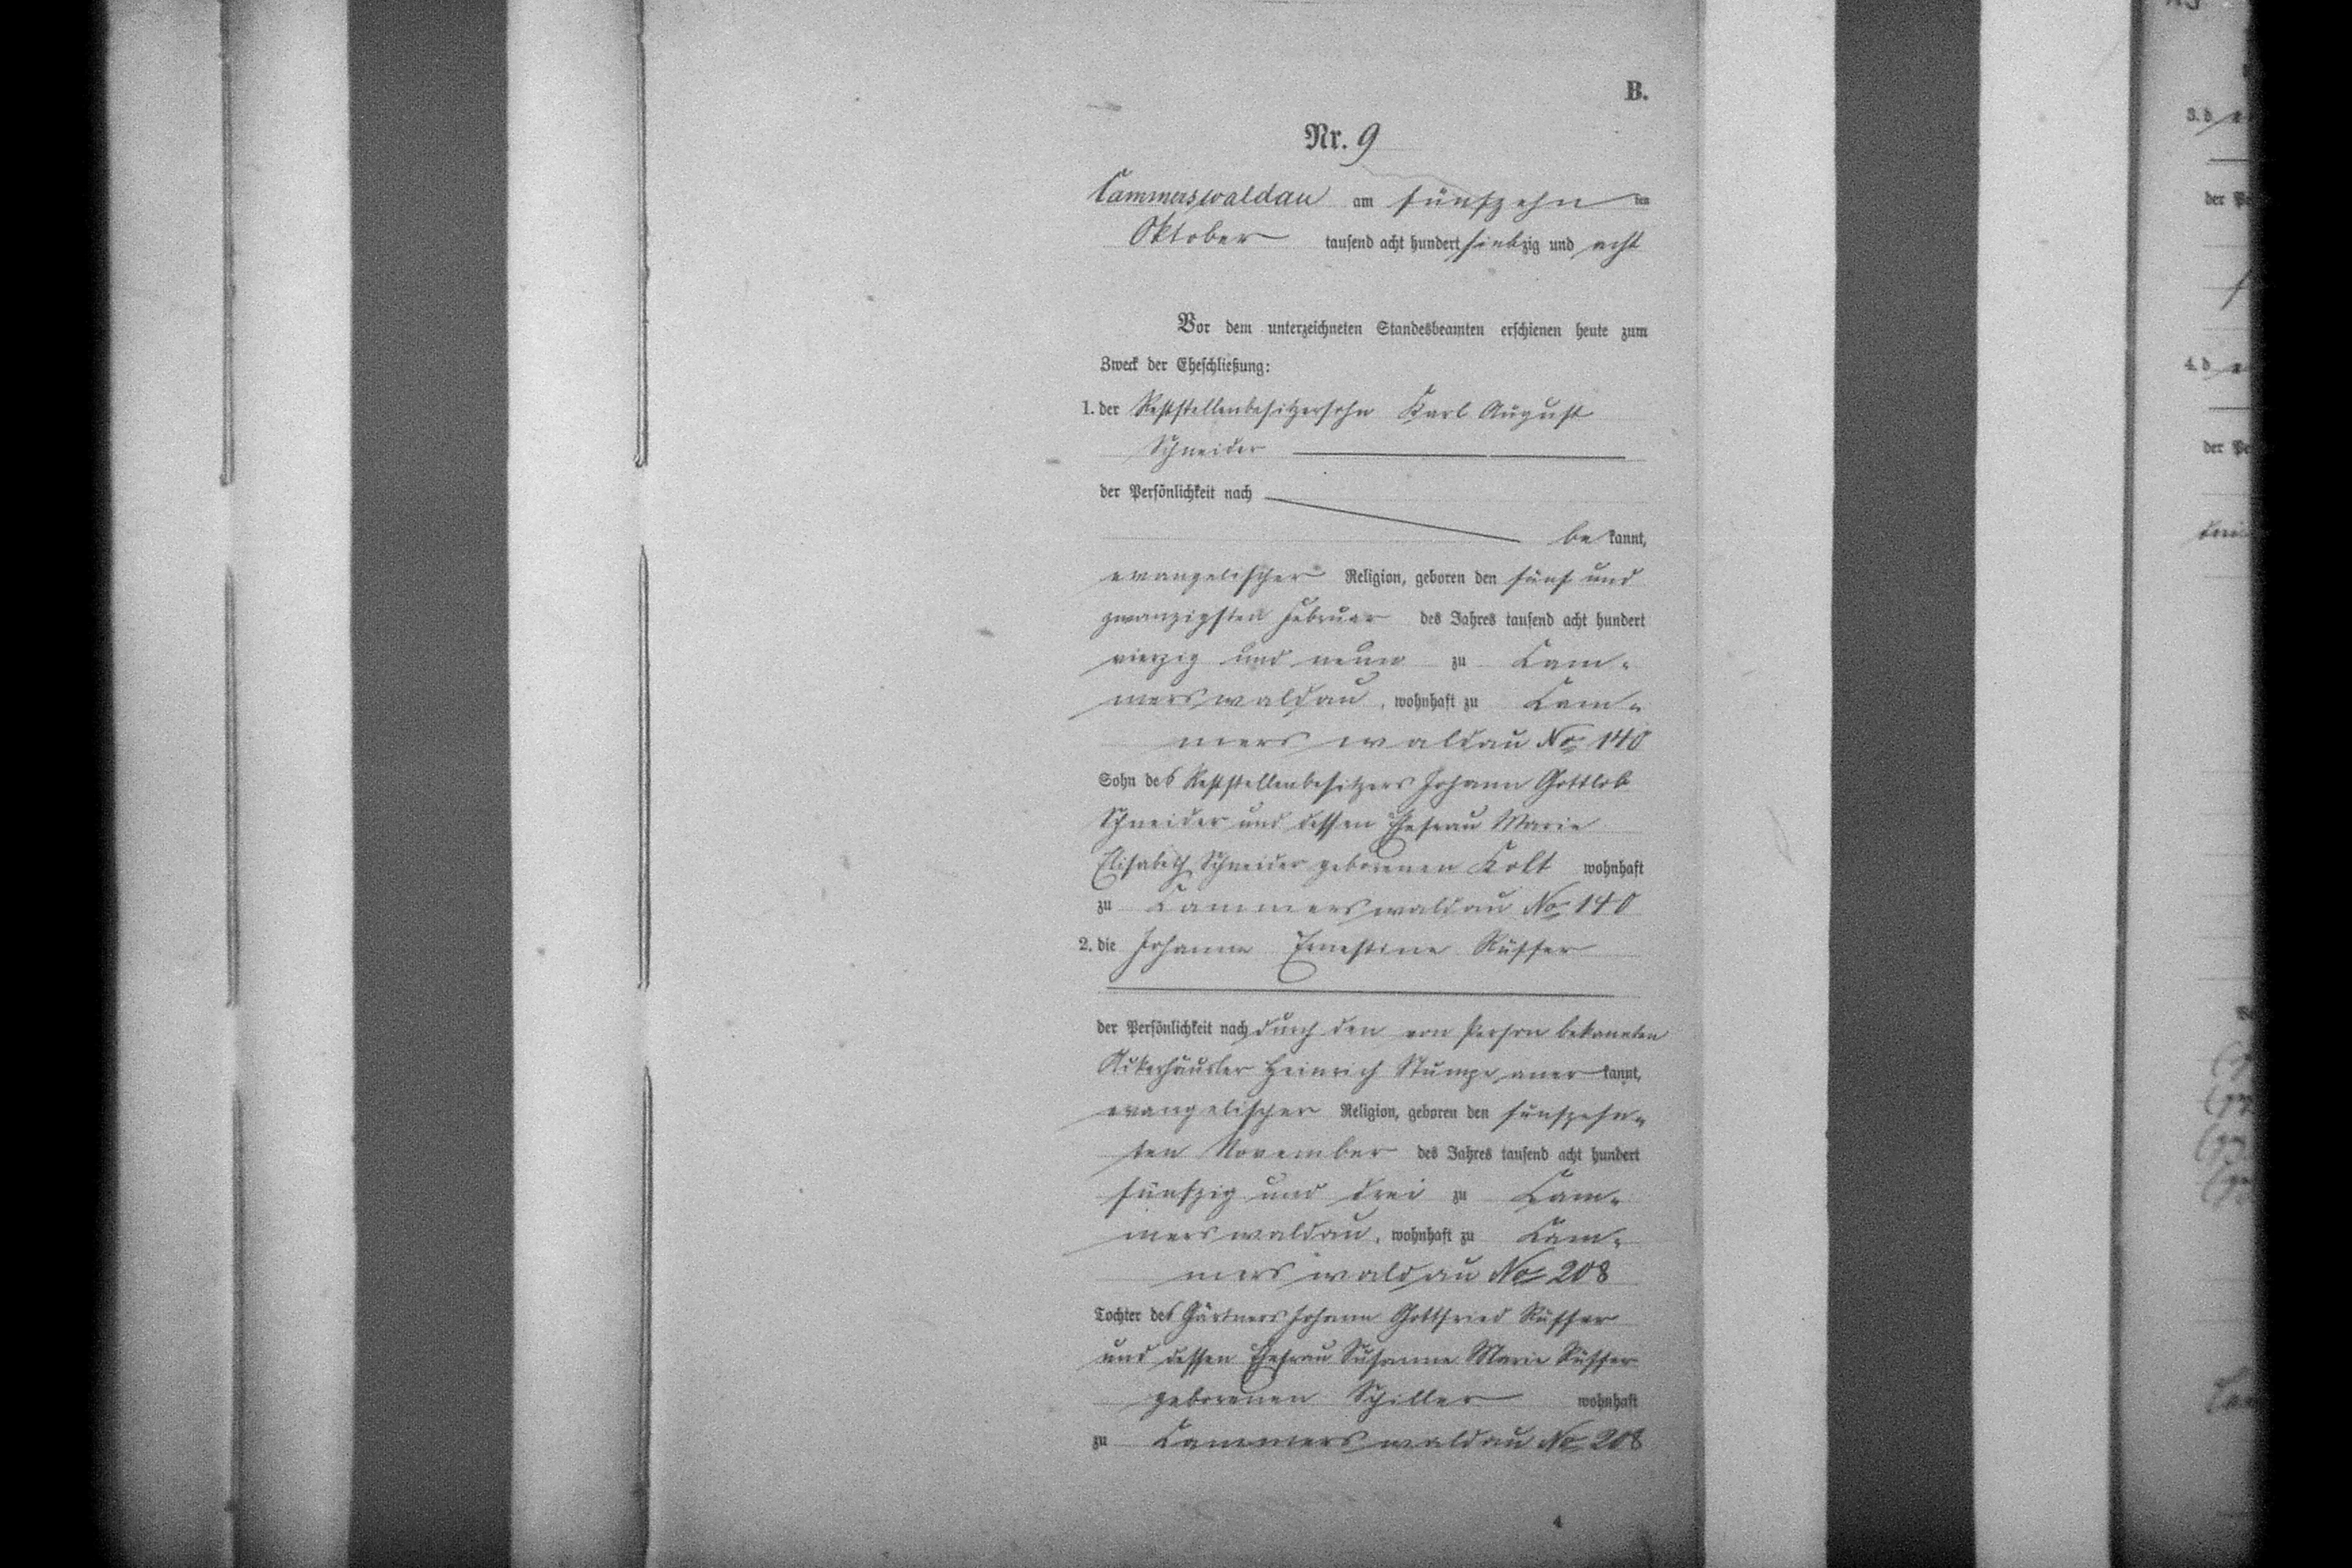 B.
Nr. 9
Cammerswaldau am fünfzehn ten
Oktober tausend acht hundert siebzig und acht
Vor dem unterzeichneten Standesbeamten erschienen heute zum
Zweck der Eheschließung:
1. der Reststellenbesitzersohn Karl August
Schneider
der Persönlichkeit nach
be kannt,
evangelischer Religion, geboren den fünf und
zwanzigsten Februar des Jahres tausend acht hundert
vierzig und neun zu Cam-
merswaldau, wohnhaft zu Cam-
merswaldau No 140
Sohn des Reststellenbesitzers Johann Gottlob
Schneider und dessen Ehefrau Marie
Elisabeth Schneider geborenen Kolt wohnhaft
zu Cammerswaldau No 140
2. die Johanne Ernestine Rüffer
der Persönlichkeit nach durch den von Person bekannten
Ackerhäusler Heinrich Stumpe aner kannt,
evangelischer Religion, geboren den fünfzehn-
ten November des Jahres tausend acht hundert
fünfzig und drei zu Cam-
merswaldau, wohnhaft zu Cam-
merswaldau No 208
Tochter des Gärtners Johann Gottfried Rüffer
und dessen Ehefrau Susanne Marie Rüffer
geborenen Schiller wohnhaft
zu Cammerswaldau No 208
4
3. d
der Pe
4. d
der Pe